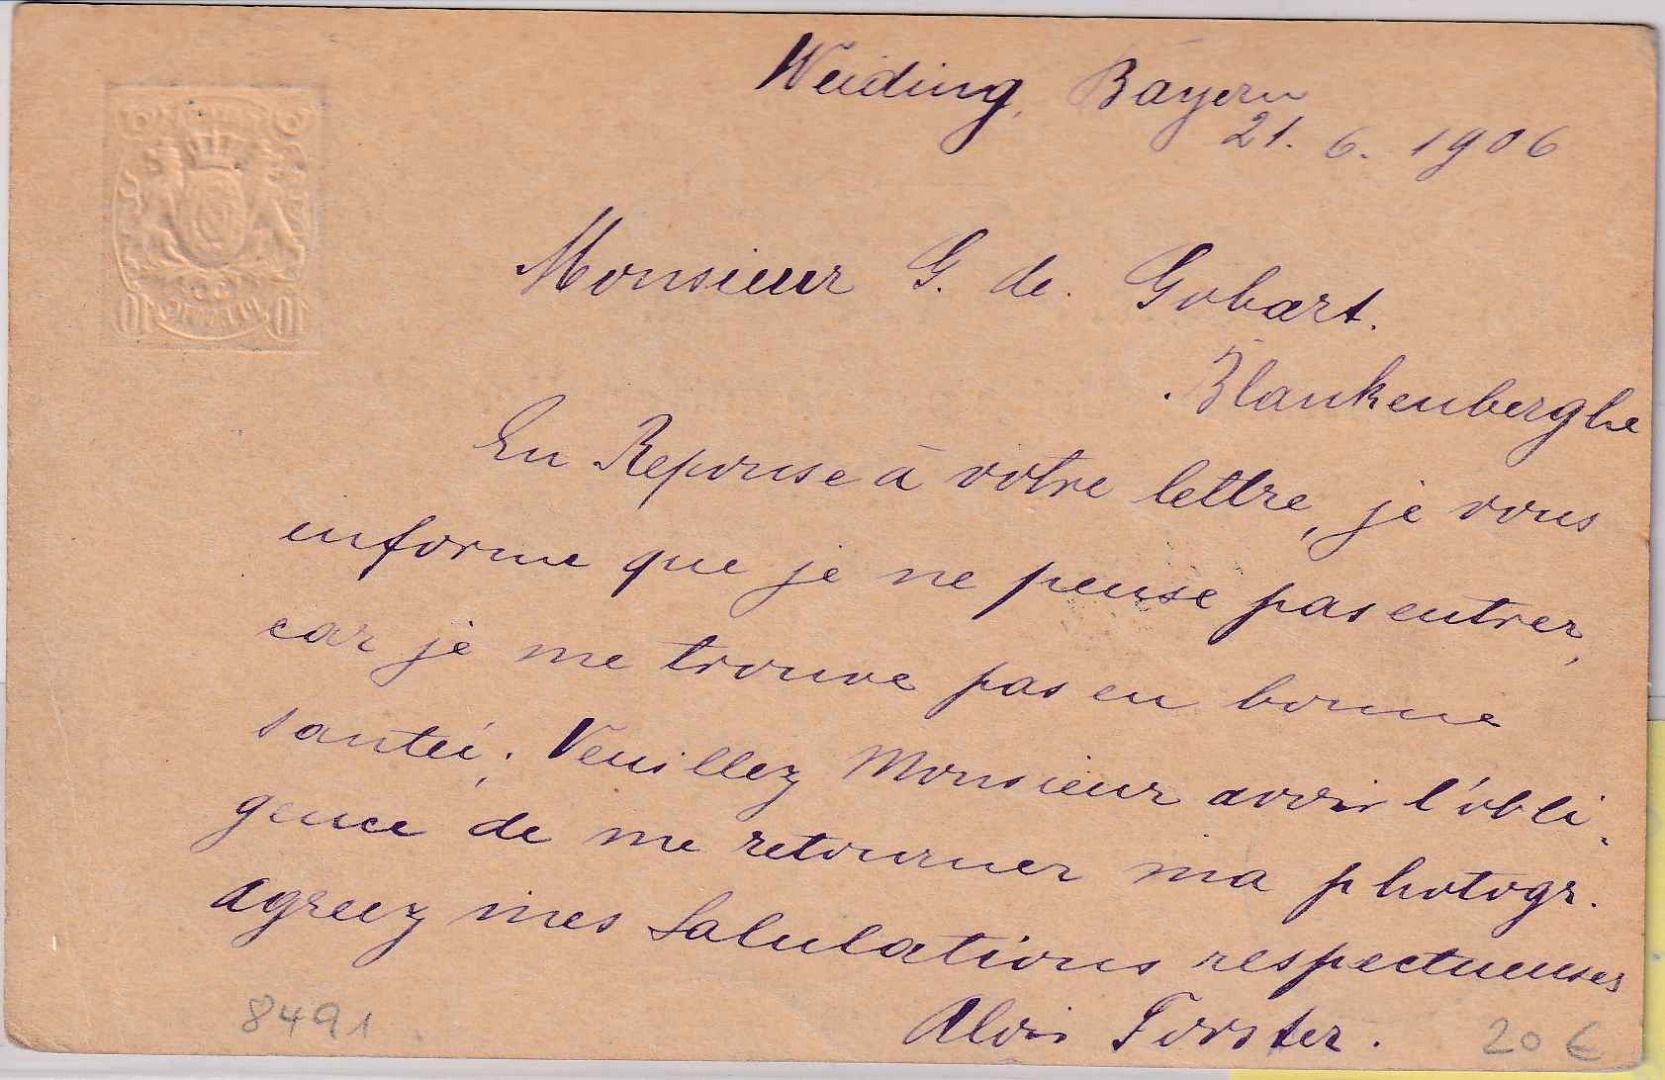 Weiding, Bayern
21. 6. 1906
Monsieur G. de. Gobart.
Blankenberghe
En Reponse à votre lettre, je vous
enforme que je ne pense pas entrer,
car je me trouve pas en bonne
santéi. Veuillez Monsieur avoir l'obli-
gence de me retourner ma photogr.
agreez mes Salulations respectueuses
Alois Forster.
8491
20 €